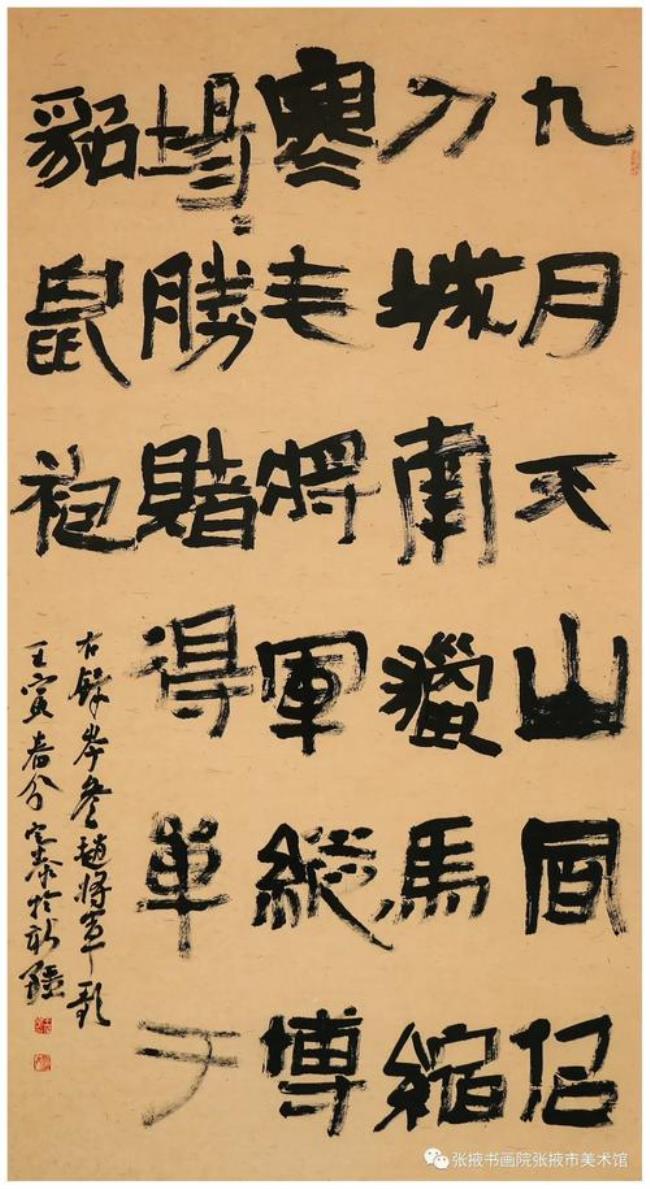 九月天山凮佀
刀城南獵馬縮
寒毛將軍縱博
場〻勝賭得單于
貂鼠袍
右錄岑參趙將軍歌
壬寅春分於新疆
张掖书画院张掖市美术馆